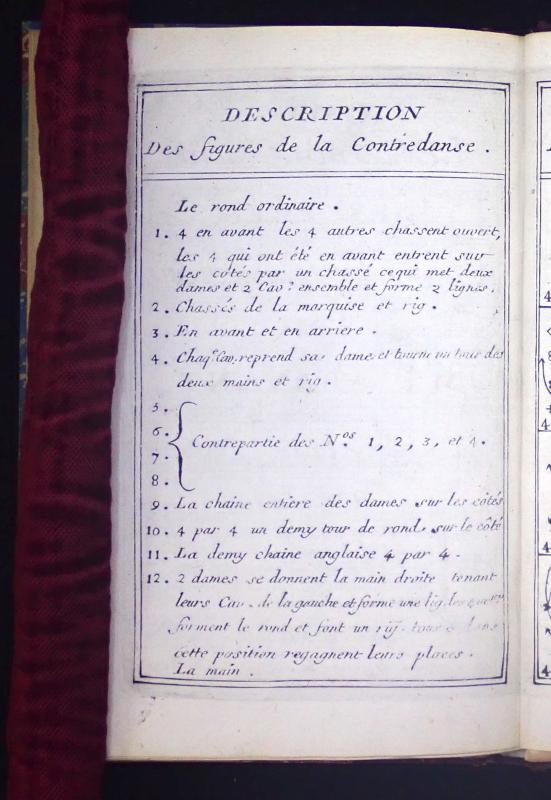 DESCRIPTION
Des figures de la Contredanse.
Le rond ordinaire.
1. 4 en avant les 4 autres chassent ouvert,
les 4 qui ont été en avant entrent sur
les côtés par un chassé ce qui met deux
dames et 2 Cav.s ensemble et forme 2 lignes.
2. Chassés de la marquise et rig.
3. En avant et en arriere.
4. Chaq.e Cav. reprend sa dame et tourne un tour des
deux mains et rig.
5.
6.
Contrepartie des N.os 1, 2, 3, et 4.
7.
8.
9. La chaine entière des dames sur les côtés
10. 4 par 4 un demy tour de rond sur le côté
11. La demy chaine anglaise 4 par 4.
12. 2 dames se donnent la main droite tenant
leurs Cav. de la gauche et forme une lig. les
forment le rond et font un tour dans
cette position regagnent leurs places.
La main.